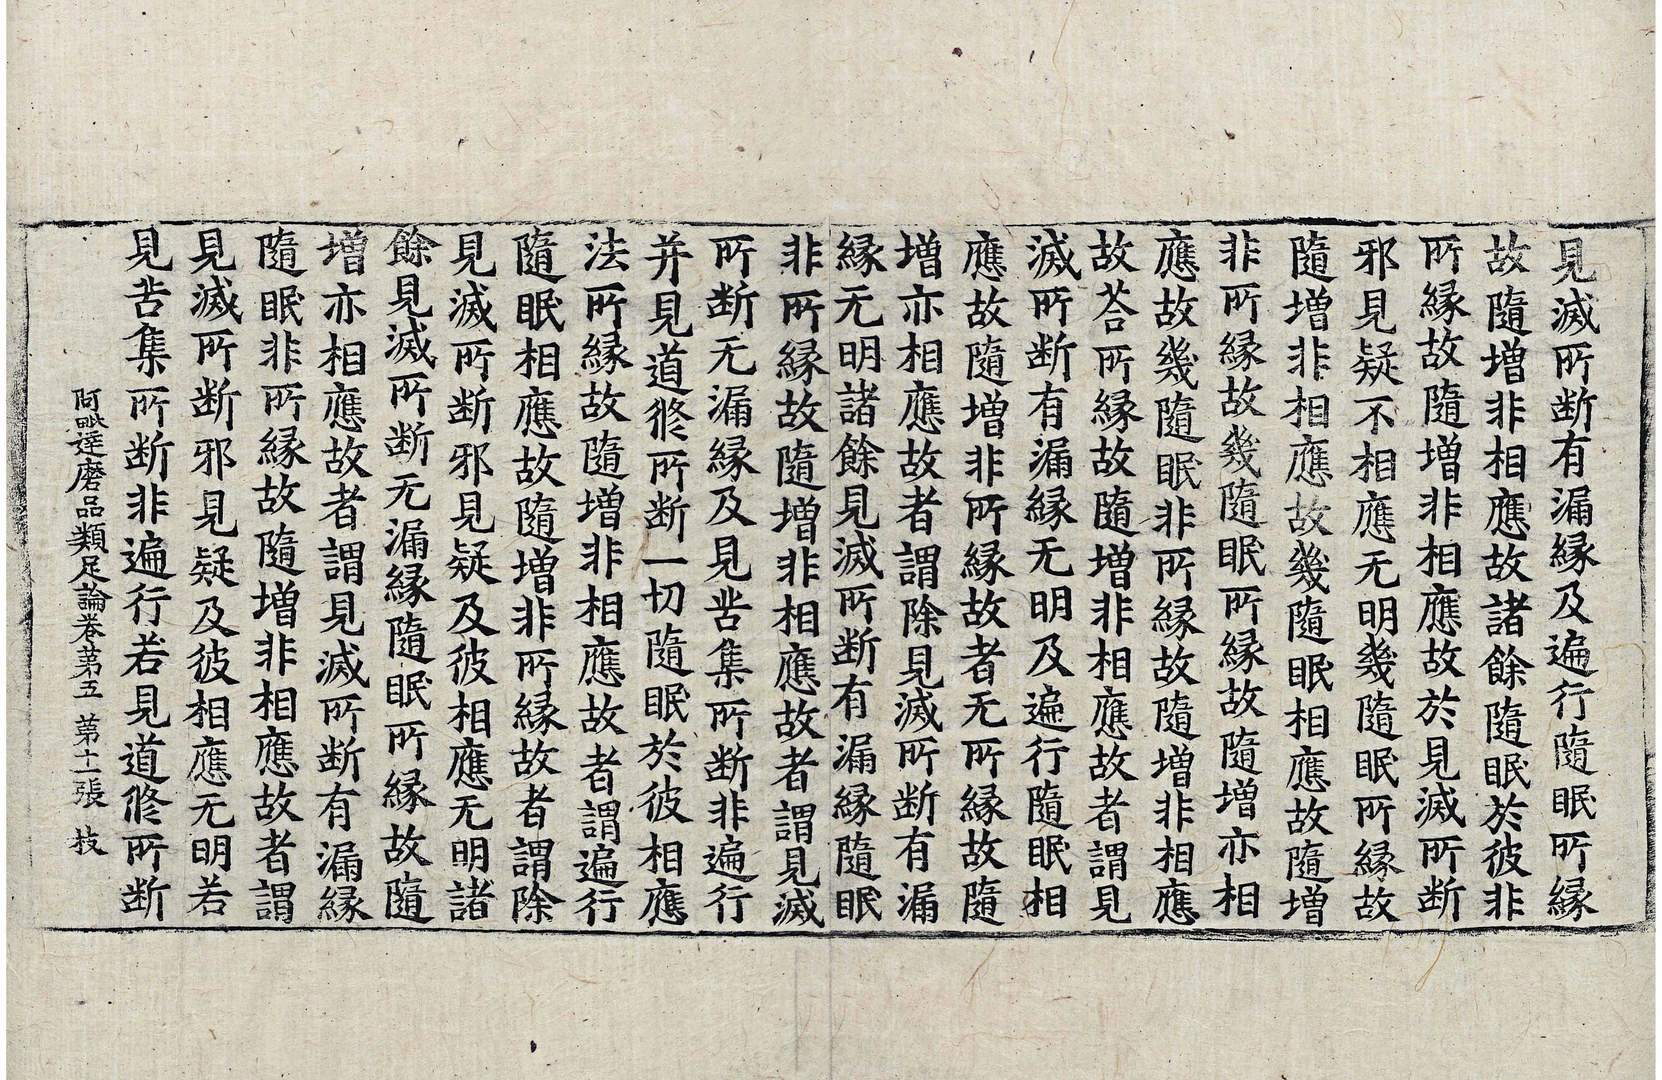 見滅所断有漏縁及遍行隨眠所縁
故隨增非相應故諸餘隨眠於彼非
所縁故隨增非相應故於見滅所断
邪見疑不相應无明幾隨眠所縁故
隨增非相應故幾隨眠相應故隨增
非所縁故幾隨眠所縁故隨增亦相
應故幾隨眠非所縁故隨增非相應
故荅所縁故隨增非相應故者謂見
滅所断有漏縁无明及遍行隨眠相
應故隨增非所縁故者无所縁故隨
增亦相應故者謂除見滅所断有漏
縁无明諸餘見滅所断有漏縁隨眠
非所縁故隨增非相應故者謂見滅
所断无漏縁及見苦集所断非遍行
并見道修所断一切隨眠於彼相應
法所縁故隨增非相應故者謂遍行
隨眠相應故隨增非所縁故者謂除
見滅所断邪見疑及彼相應无明諸
餘見滅所断无漏縁隨眠所縁故隨
增亦相應故者謂見滅所断有漏縁
隨眠非所縁故隨增非相應故者謂
見滅所断邪見疑及彼相應无明若
見苦集所断非遍行若見道修所断
阿毗達磨品類足論卷第五 第十一張 枝